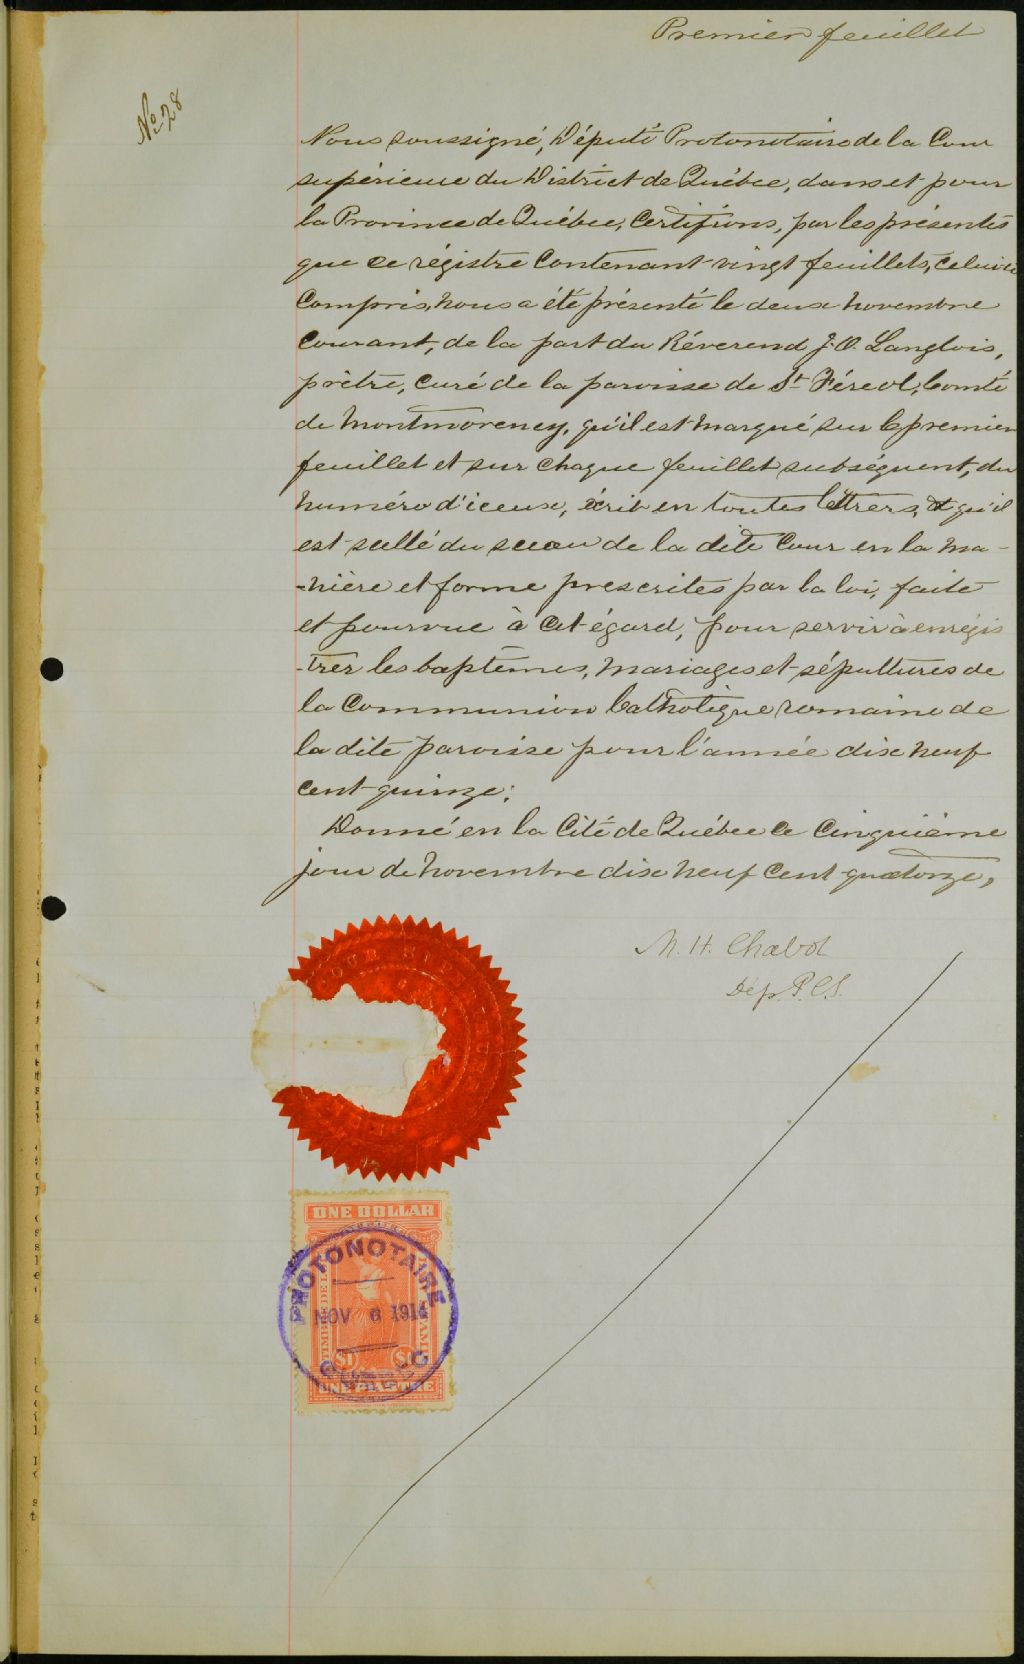 Premier feuillet
No 28
Nous soussigné, Député Protonotaire de la Cour
supérieure du District de Québec, dans et pour
la Province de Québec, Certifions, par les présentes
que ce régistre Contenant vingt feuillets, Celui-ci
Compris, nous a été présenté le deux novembre
Courant, de la part du Réverend J. O. Langlois,
prêtre, curé de la paroisse de St Féreol, Comté
de Montmorency, qu'il est marqué sur le premier
feuillet et sur chaque feuillet subséquent, du
numéro d'iceux, écrit en toutes lettres, et qu'il
est scellé du sceau de la dite Cour en la ma-
-nière et forme prescrites par la loi, faite
et pourvue à Cet égard, pour servir à enrégis
-trer les baptêmes, mariages et sépultures de
la Communion Catholique romaine de
la dite paroisse pour l'année dix neuf
cent quinze.
Donné en la Cité de Québec ce Cinquième
jour de novembre dix neuf Cent quatorze,
M. H. Chabot
Dép. P.C.S.
COUR
ONE DOLLAR
PROTONOTAIRE
NOV 6 1914
TIMBRE DE
$1 $1
QUEBEC
ONE PIASTRE